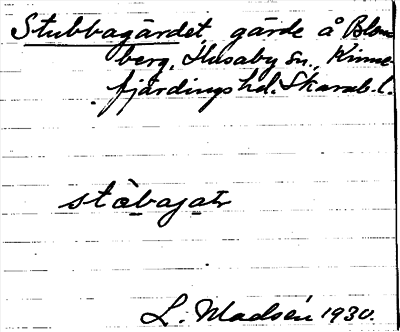 Stubbagärdet gärde å Blom
berg, Husaby sn., Kinne-
fjärdings hd. Skarab. l.
L. Madsén 1930.